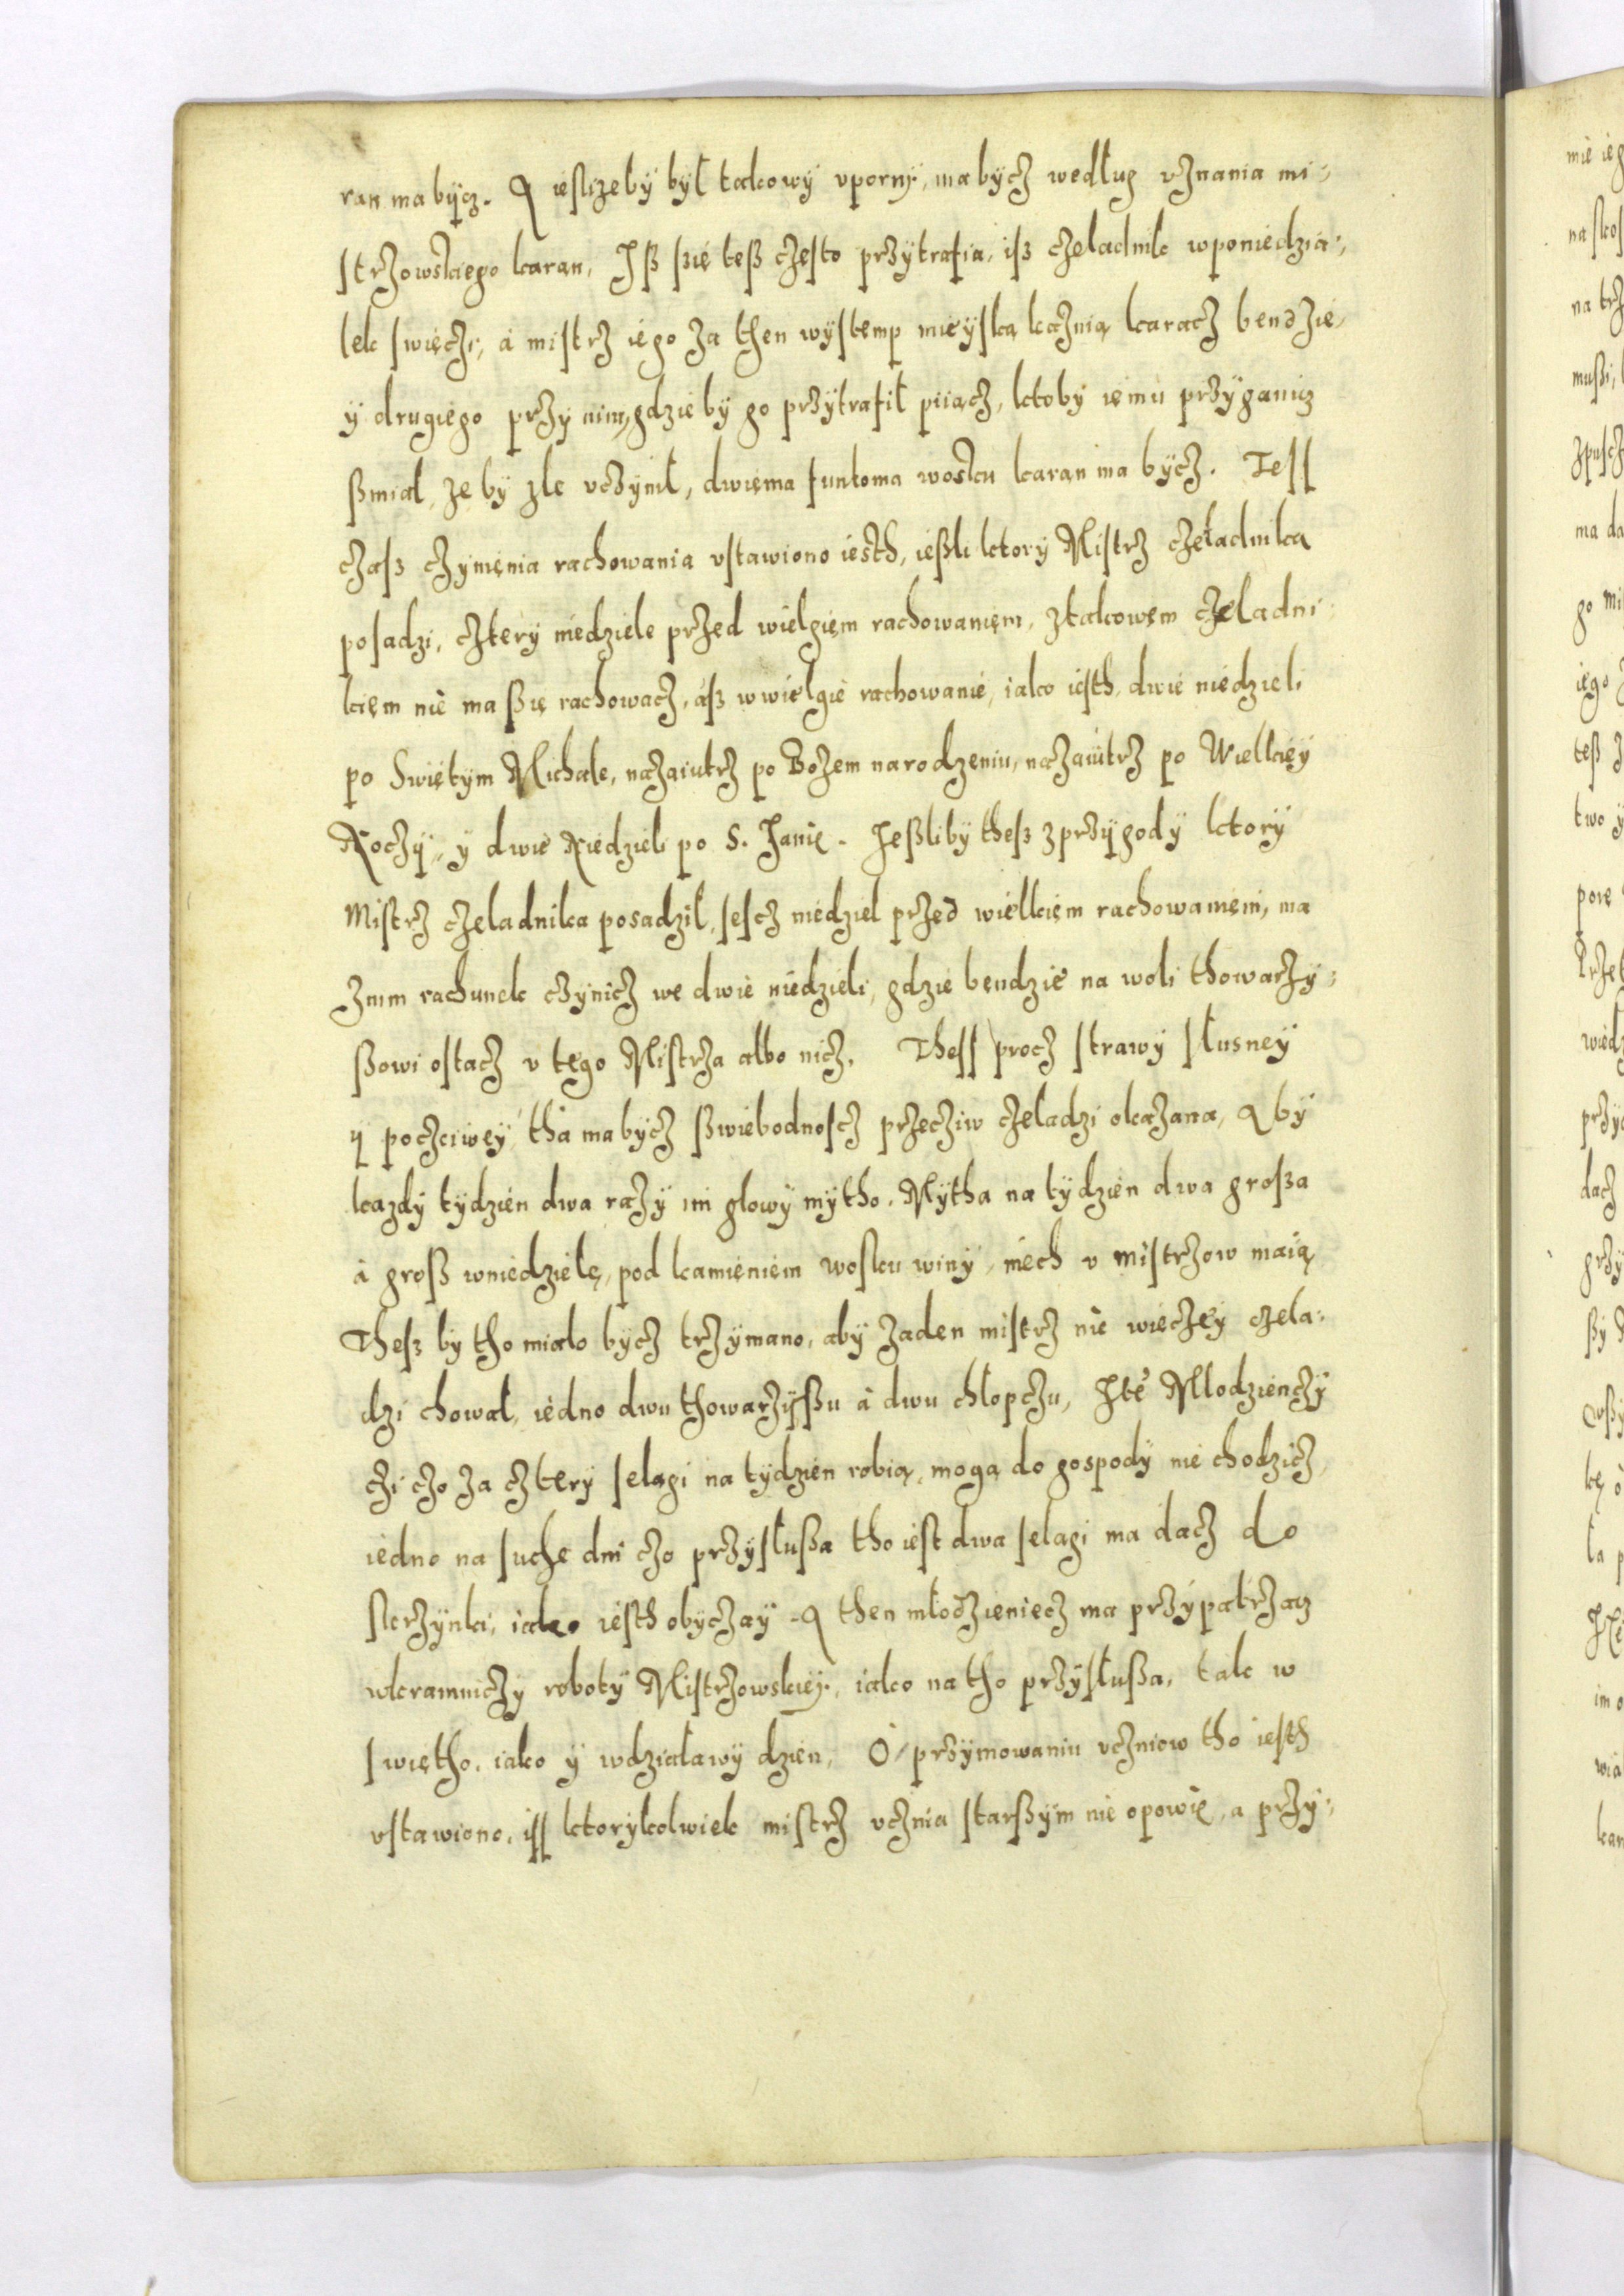 ran ma bÿcz. A ieslizebÿ bÿł takowÿ vpornÿ, ma bÿcz według vznania mi:
strzowskiego karan, Iß ßię teß cżęsto przÿtrafia, iß cżeladnik wponiedzia:,
łek swięczi, á mistrz iego za then wÿstemp mieÿską kaznią karacz bendzie,
ÿ drugiego przÿ nim, gdzie bÿ go przÿtrafił piiącz, ktobÿ iemu przÿganicz
ßmiał, ze bÿ zle vczÿnił, dwiema funtoma wosku karan ma bÿcz. Tess
czass czÿnienia rachowania vstawiono iesth, ießli ktorÿ Mistrz czeladnika
posadzi, czterÿ niedziele przed wielgiem rachowaniem, ztakowem czeladni:
kiem nie ma ßię rachowacz, áß wwielgie rachowanie, iako iesth, dwie niedzieli
po Swiętÿm Michale, nazaiutrz po Bożem narodzeniu, nazaiutrz po Wielkieÿ
Noczÿ, ÿ dwie Niedzieli po S. Janie. Jeßlibÿ thesz zprzÿgodÿ ktorÿ
Mistrz czeladnika posadził, sescz niedziel przed wielkiem rachowaniem, ma
znim rachunek czÿnicz we dwie niedzieli, gdzie bendzie na woli thowarzÿ:
ßowi ostacz v tego Mistrza albo nicz. Thess procz strawÿ słusneÿ
ÿ poczciweÿ tha ma bÿcz ßwiebodnoscz przecziw czeladzi okazana, Abÿ
kazdÿ tÿdzien dwa razÿ im głowÿ mÿtho. Mÿtha na tÿdzien dwa großa
á groß wniedzielę, pod kamieniem wosku winÿ, niech v mistrzow maią
Thesz bÿ tho miało bÿcz trzÿmano, abÿ zaden mistrz nie wieczeÿ czela:
dzi chował, iedno dwu thowarzÿßu á dwu chłopczu, Ité Młodzienczÿ
czi czo za czterÿ selągi na tÿdzien robią, mogą do gospodÿ nie chodzicz,
iedno na suche dni czo przÿsłußa tho iest dwa selągi ma dacz do
skrzÿnki, iako iesth obÿczaÿ. A then młodzieniecz ma przÿpatrzacz
wkramniczÿ robotÿ Mistrzowskieÿ, iako na tho przÿsłußa, tak w
swiętho, iako ÿ wdziaławÿ dzien, O przÿmowaniu vczniow tho iesth
vstawiono, iss ktorÿkolwiek mistrz vcznia starßÿm nie opowie, a przÿ: